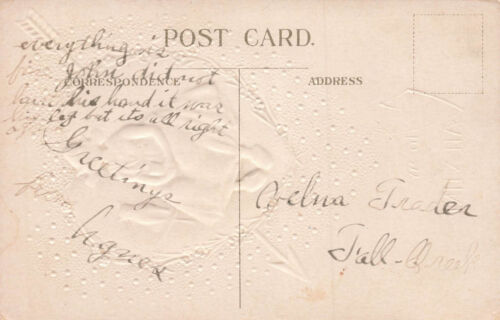 POST CARD.
CORRESPONDENCE
ADDRESS
everything is
fine John did not
his hand it was
his leg but its all right
Greetings
from
Agnes
Velma Trader
Fall-Creek